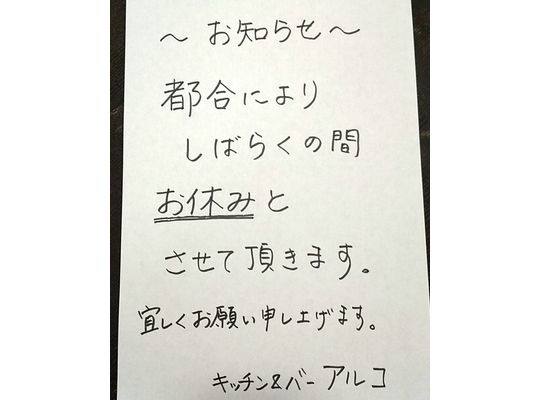 ～お知らせ～
都合により
しばらくの間
お休みと
させて頂きます。
宜しくお願い申し上げます。
キッチン&バー アルコ